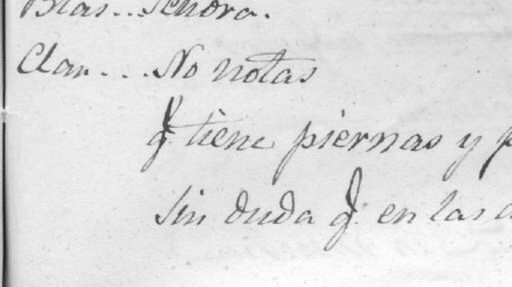 Blas.. Señora.
Clar... No notas
q.e tiene piernas y p
sin duda q.e en las a